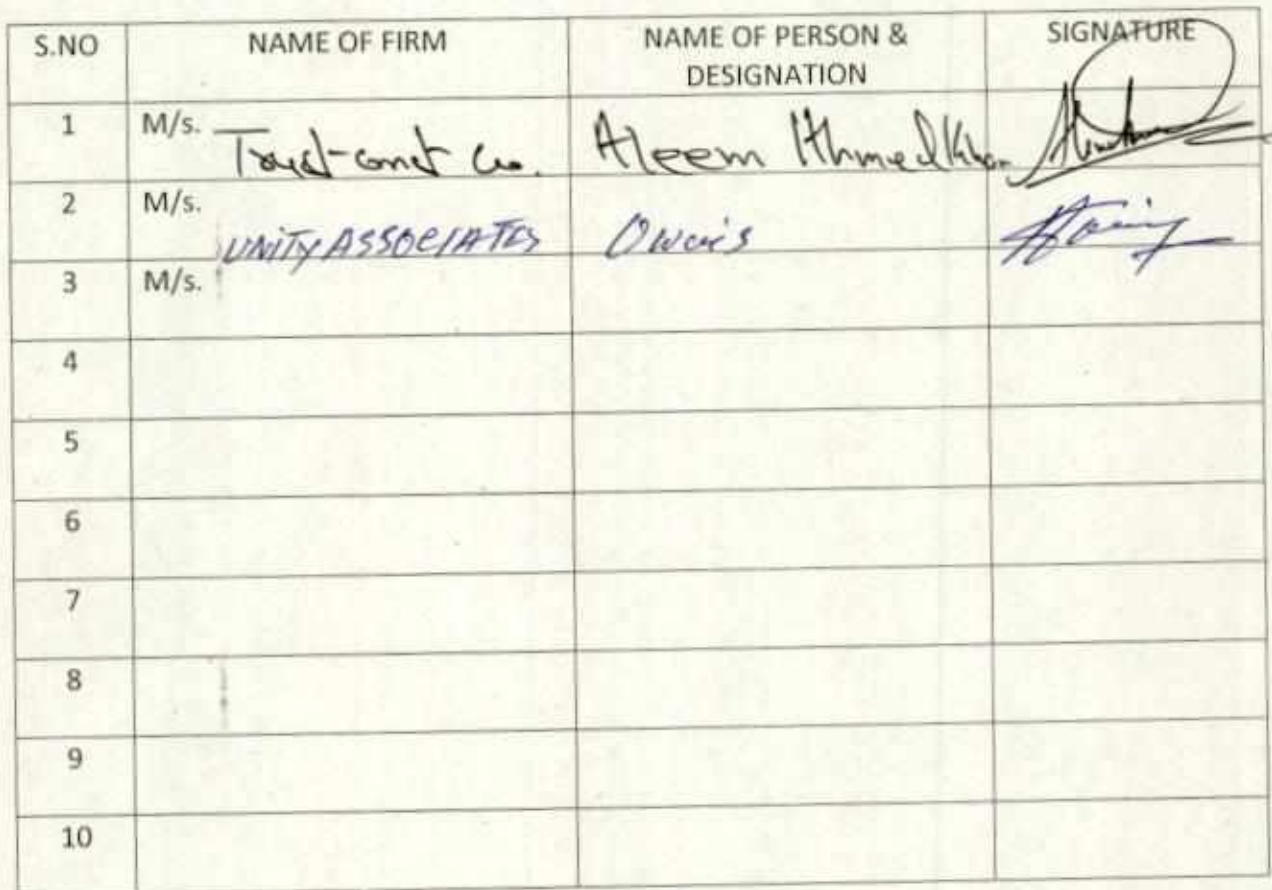 S.NO NAME OF FIRM NAME OF PERSON & DESIGNATION SIGNATURE
1 M/s. Trust const Co. Aleem Ahmed Khan
2 M/s. UNITY ASSOCIATES Owais
3 M/s.
4
5
6
7
8
9
10